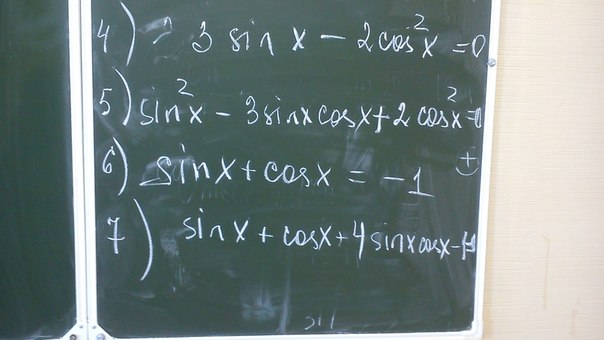 4) 3 sin x - 2cos²x = 0
5) sin²x - 3sinxcosx + 2cos²x = 0
6) sinx + cosx = -1
7) sinx + cosx + 4sinxcosx -